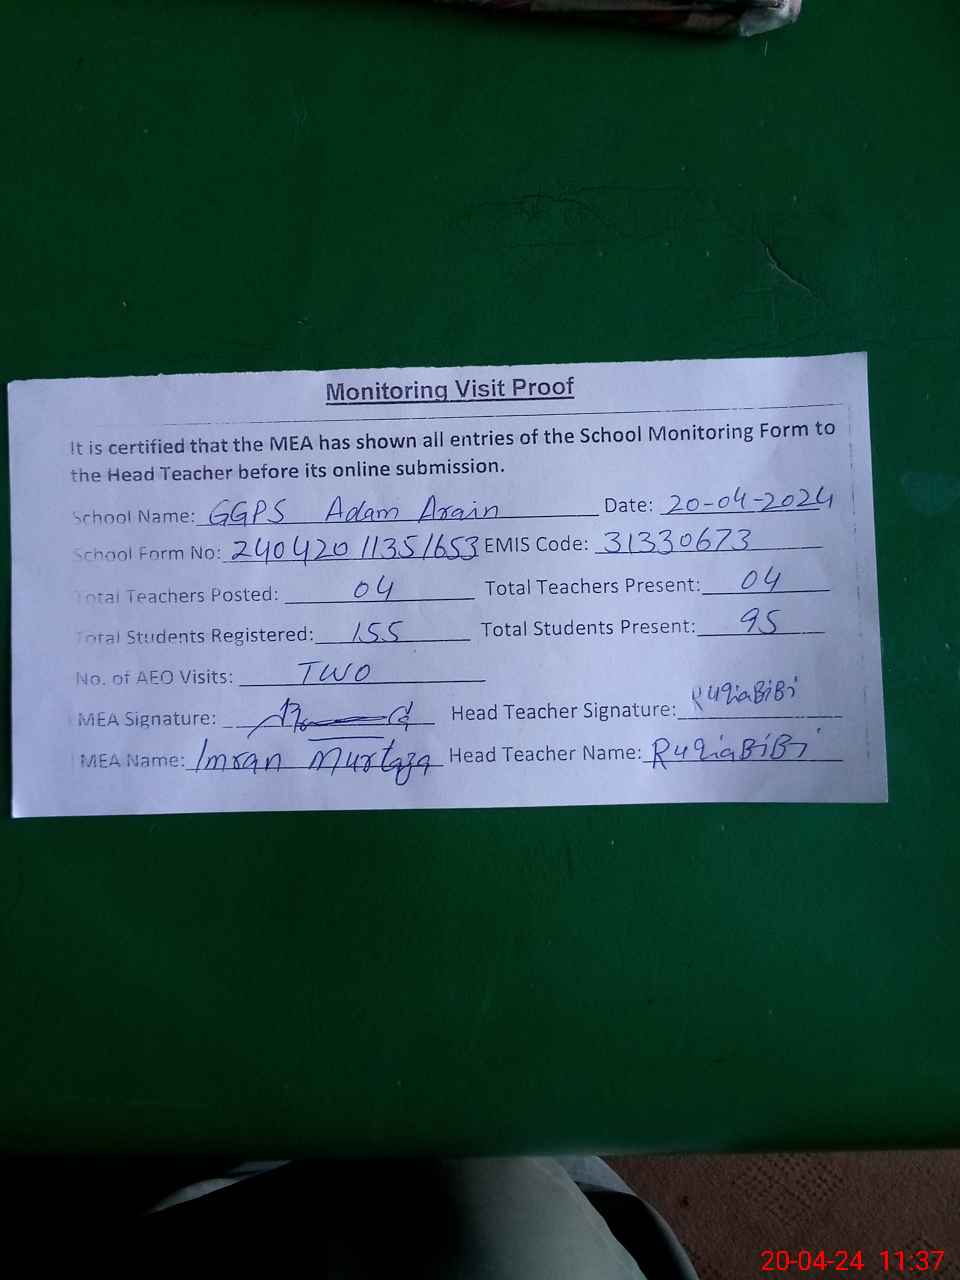 Monitoring Visit Proof
It is certified that the MEA has shown all entries of the School Monitoring Form to
the Head Teacher before its online submission.
School Name: GGPS Adam Arain Date: 20-04-2024
School Form No: 24042011351653 EMIS Code: 31330673
Total Teachers Posted: 04 Total Teachers Present: 04
Total Students Registered: 155 Total Students Present: 95
No. of AEO Visits: TWO
MEA Signature: Head Teacher Signature: RuqiaBiBi
MEA Name: Imran Murtaza Head Teacher Name: RuqiaBiBi
20-04-24 11:37